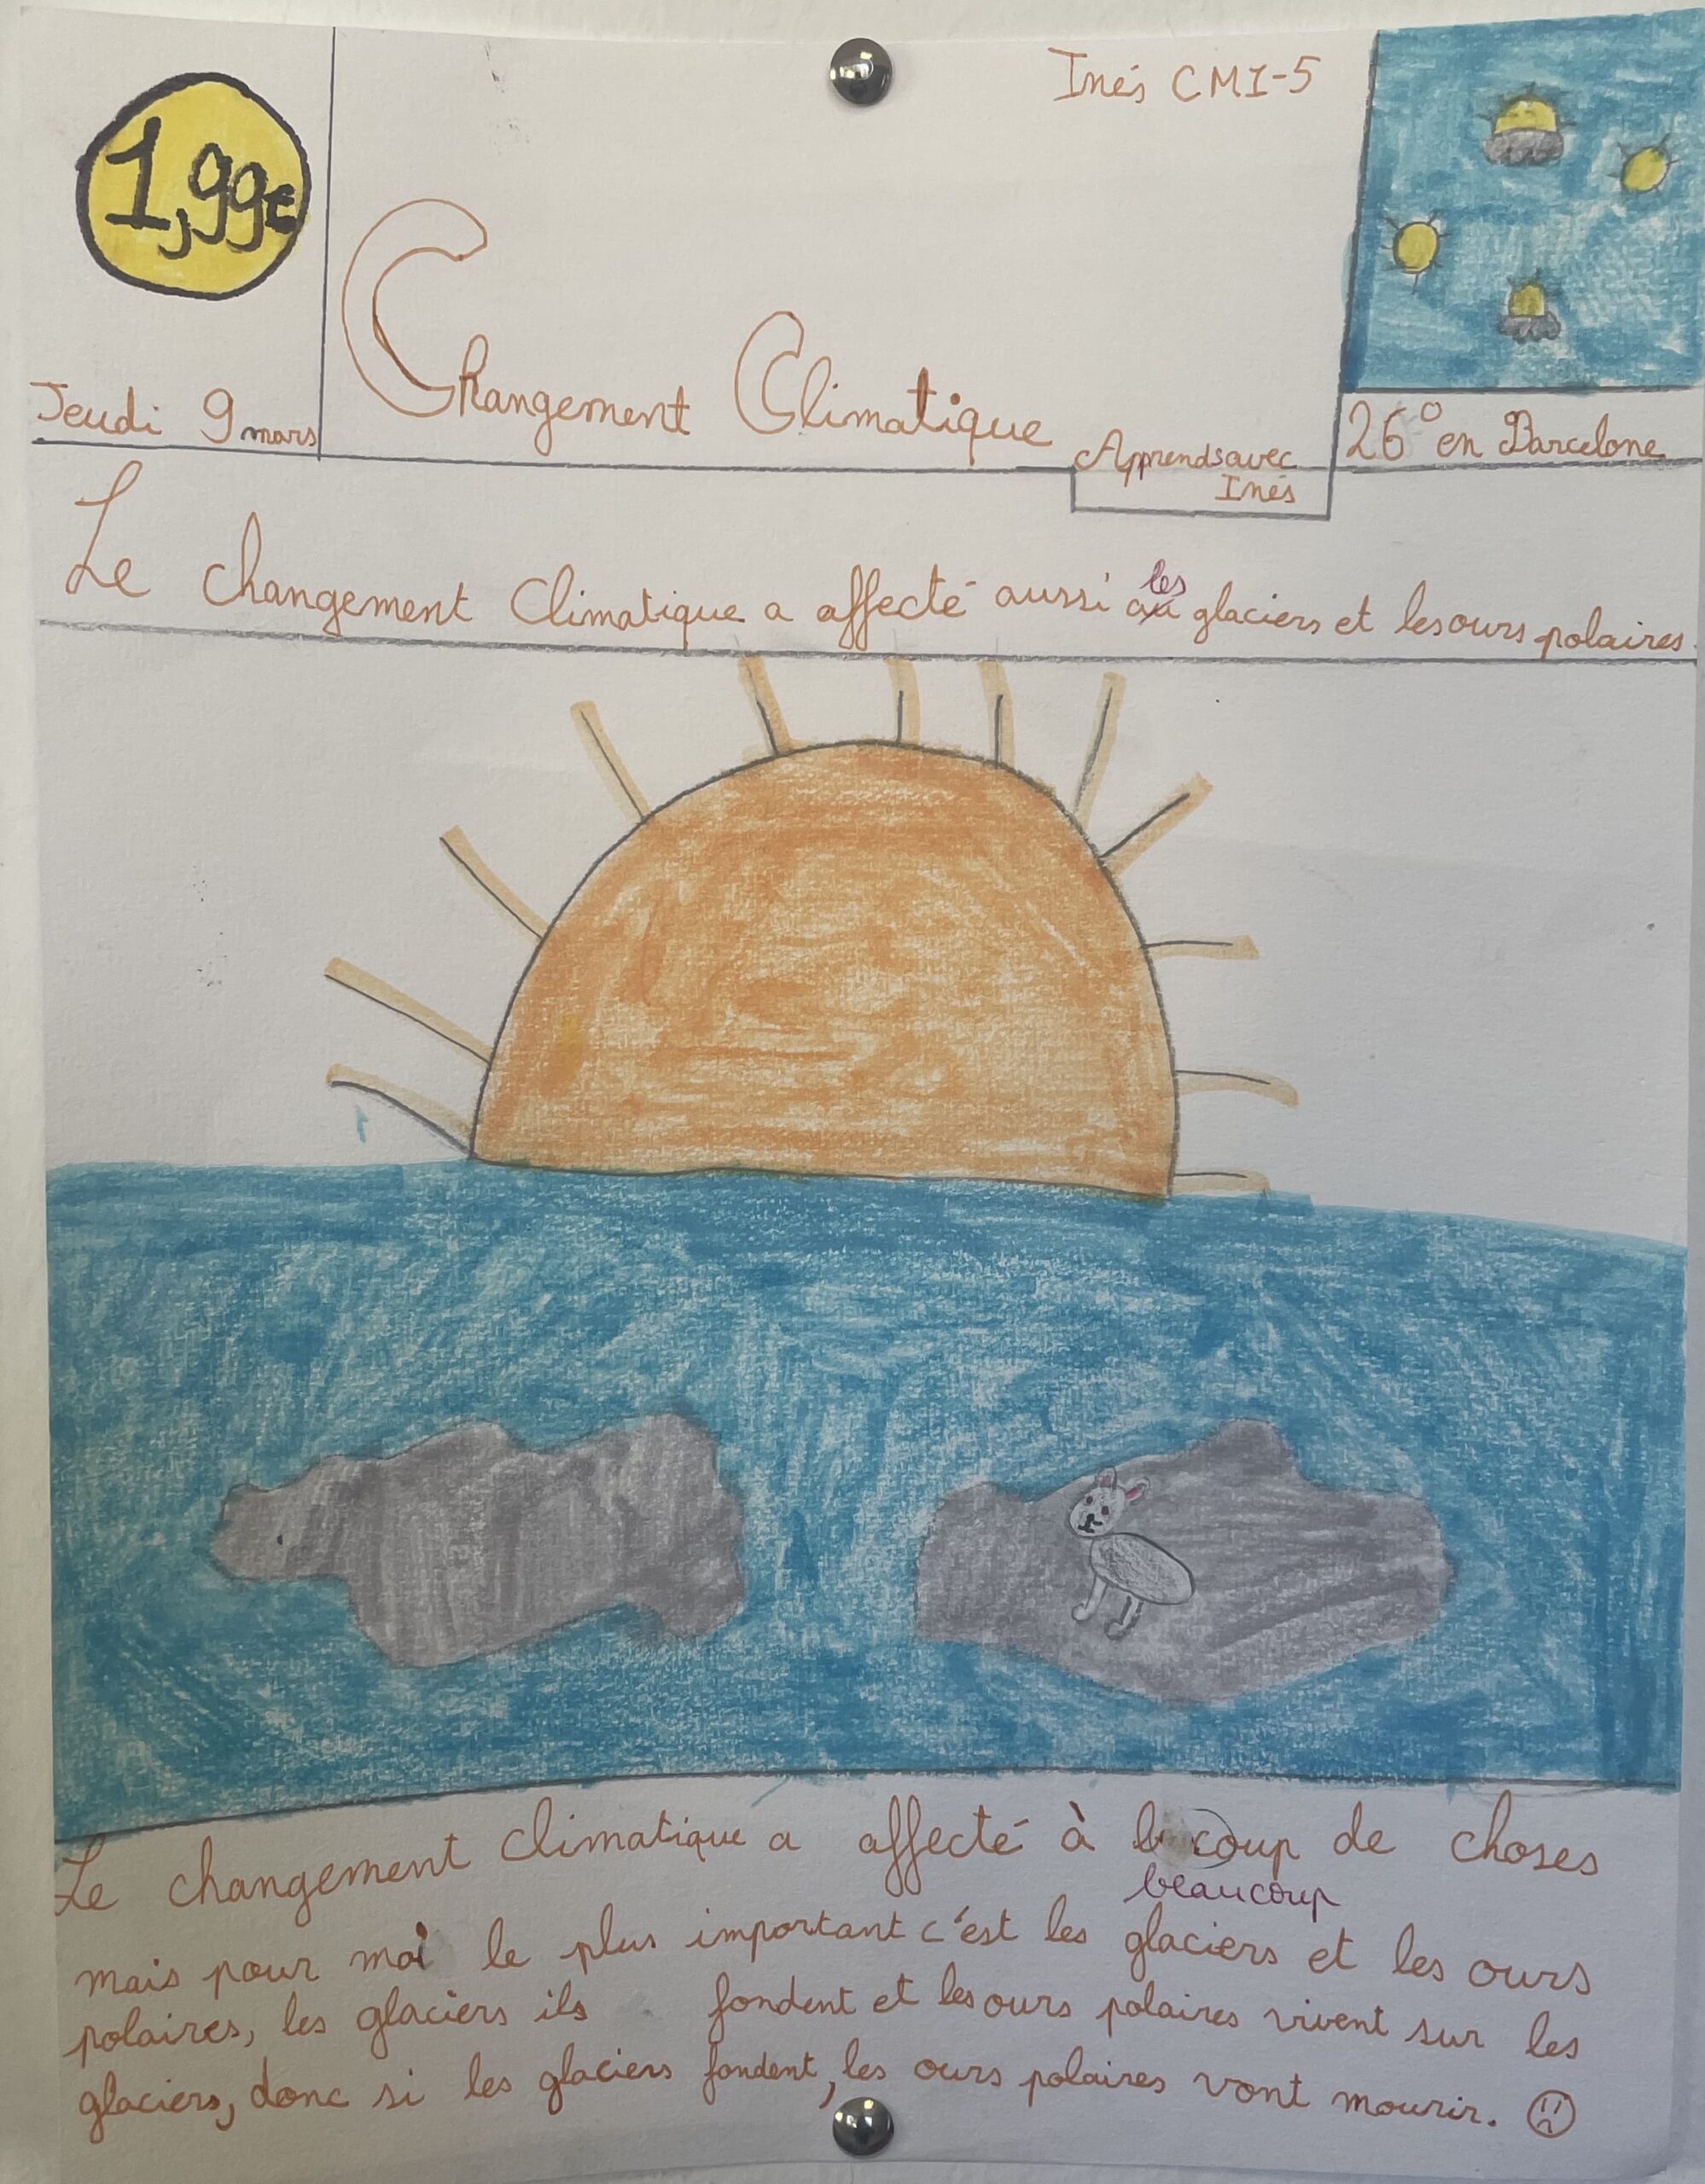 1,99€
Inés CM1-5
Jeudi 9 mars
Changement Climatique
Apprends avec
Inés
26° en Barcelone
Le changement Climatique a affecté aussi les glaciers et les ours polaires.
Le changement climatique a affecté à coup de choses
beaucoup
mais pour moi le plus important c'est les glaciers et les ours
polaires, les glaciers ils fondent et les ours polaires vivent sur les
glaciers, donc si les glaciers fondent, les ours polaires vont mourir.